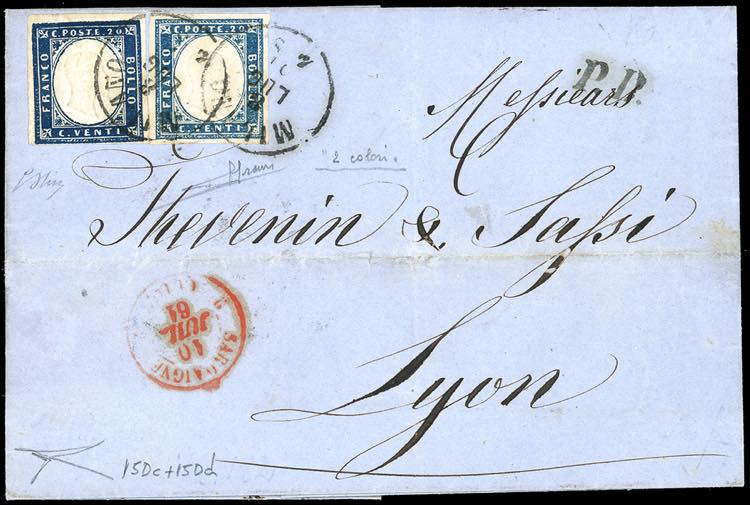 C. POSTE. 20. C. POSTE. 20.
FRANCO BOLLO FRANCO BOLLO
C. VENTI C. VENTI
MI
LUG
P.D.
Messieurs
"2 colori"
Thevenin & Sassi
SARDAIGNE
10
JUIL
61
Lyon
15Dc+15Dd